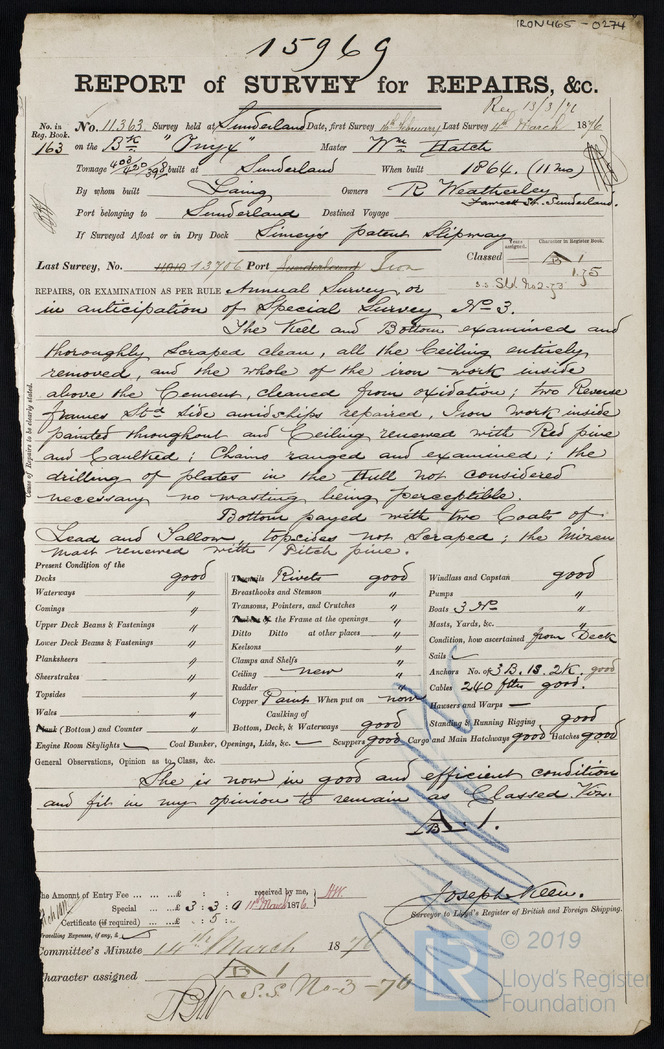 IRON465-0274
15969
REPORT of SURVEY for REPAIRS, &c.
Rec 13/3/76
No. in Reg. Book. No. 11,363. Survey held at Sunderland Date, first Survey 16th February Last Survey 4th March 1876
163 on the Bk "Onyx" Master Wm Hatch
Tonnage 408/420/398 built at Sunderland When built 1864. (11 mo)
By whom built Laing Owners R Weatherley
Fawcett St. Sunderland.
Port belonging to Sunderland Destined Voyage
If Surveyed Afloat or in Dry Dock Simey's patent Slipway
Years assigned. Character in Register Book.
Last Survey, No. 13706 Port Sunderland Iron Classed — A 1
B 1.75
S.S. Sld No 2-73
REPAIRS, OR EXAMINATION AS PER RULE Annual Survey or
in anticipation of Special Survey No 3.
The Keel and Bottom examined and
thoroughly scraped clean, all the Ceiling entirely
removed, and the whole of the iron work inside
above the Cement, cleaned from oxidation; two Reverse
frames Stbd side amidships repaired, Iron work inside
painted throughout and Ceiling renewed with Red pine
and Caulked; Chains ranged and examined; the
drilling of plates in the Hull not considered
necessary no wasting being perceptible.
Bottom payed with two Coats of
Lead and Tallow, topsides not scraped; the Mizen
mast renewed with Pitch pine.
Cause of Repairs to be clearly stated.
Present Condition of the
Decks good
Waterways "
Comings "
Upper Deck Beams & Fastenings "
Lower Deck Beams & Fastenings "
Planksheers "
Sheerstrakes "
Topsides "
Wales "
Plank (Bottom) and Counter "
Engine Room Skylights —
Treenails Rivets good
Breasthooks and Stemson "
Transoms, Pointers, and Crutches "
Timbers of the Frame at the openings "
Ditto Ditto at other places "
Keelsons "
Clamps and Shelfs "
Ceiling new "
Rudder "
Copper Paint When put on now
Caulking of
Bottom, Deck, & Waterways good
Coal Bunker, Openings, Lids, &c. — Scuppers good
Windlass and Capstan good
Pumps "
Boats 3 No "
Masts, Yards, &c. "
Condition, how ascertained from Deck
Sails
Anchors No. of 3 B. 1S. 2K. good
Cables 240 fths good.
Hawsers and Warps —
Standing & Running Rigging good
Cargo and Main Hatchways good Hatches good
General Observations, Opinion as to Class, &c.
She is now in good and efficient condition
and fit in my opinion to remain as Classed Viz.
A 1.
B
The Amount of Entry Fee ... ... £ : : received by me,
Special ... ... £ 3 : 3 : 0 11th March 1876
Certificate (if required) ... £ : 5 :
Travelling Expenses, if any, £
Joseph Keen.
Surveyor to Lloyd's Register of British and Foreign Shipping.
Committee's Minute 14th March 1876
Character assigned A 1
B
S.S. No-3-76
LR
© 2019
Lloyd's Register
Foundation